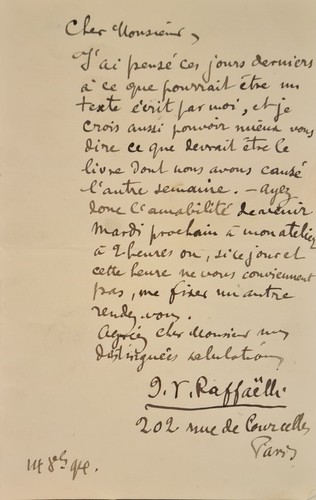 Cher Monsieur,
J'ai pensé ces jours derniers
à ce que pourrait être un
texte écrit par moi, et je
crois aussi pouvoir mieux vous
dire ce que devrait être le
livre dont nous avons causé
l'autre semaine. — Ayez
donc l'amabilité de venir
Mardi prochain à mon atelier
à 2 heures ou, si ce jour et
cette heure ne vous conviennent
pas, me fixer un autre
rendez-vous.
Agréez cher Monsieur mes
distinguées salutations
J. F. Raffaëlli
202 rue de Courcelles
Paris
94.